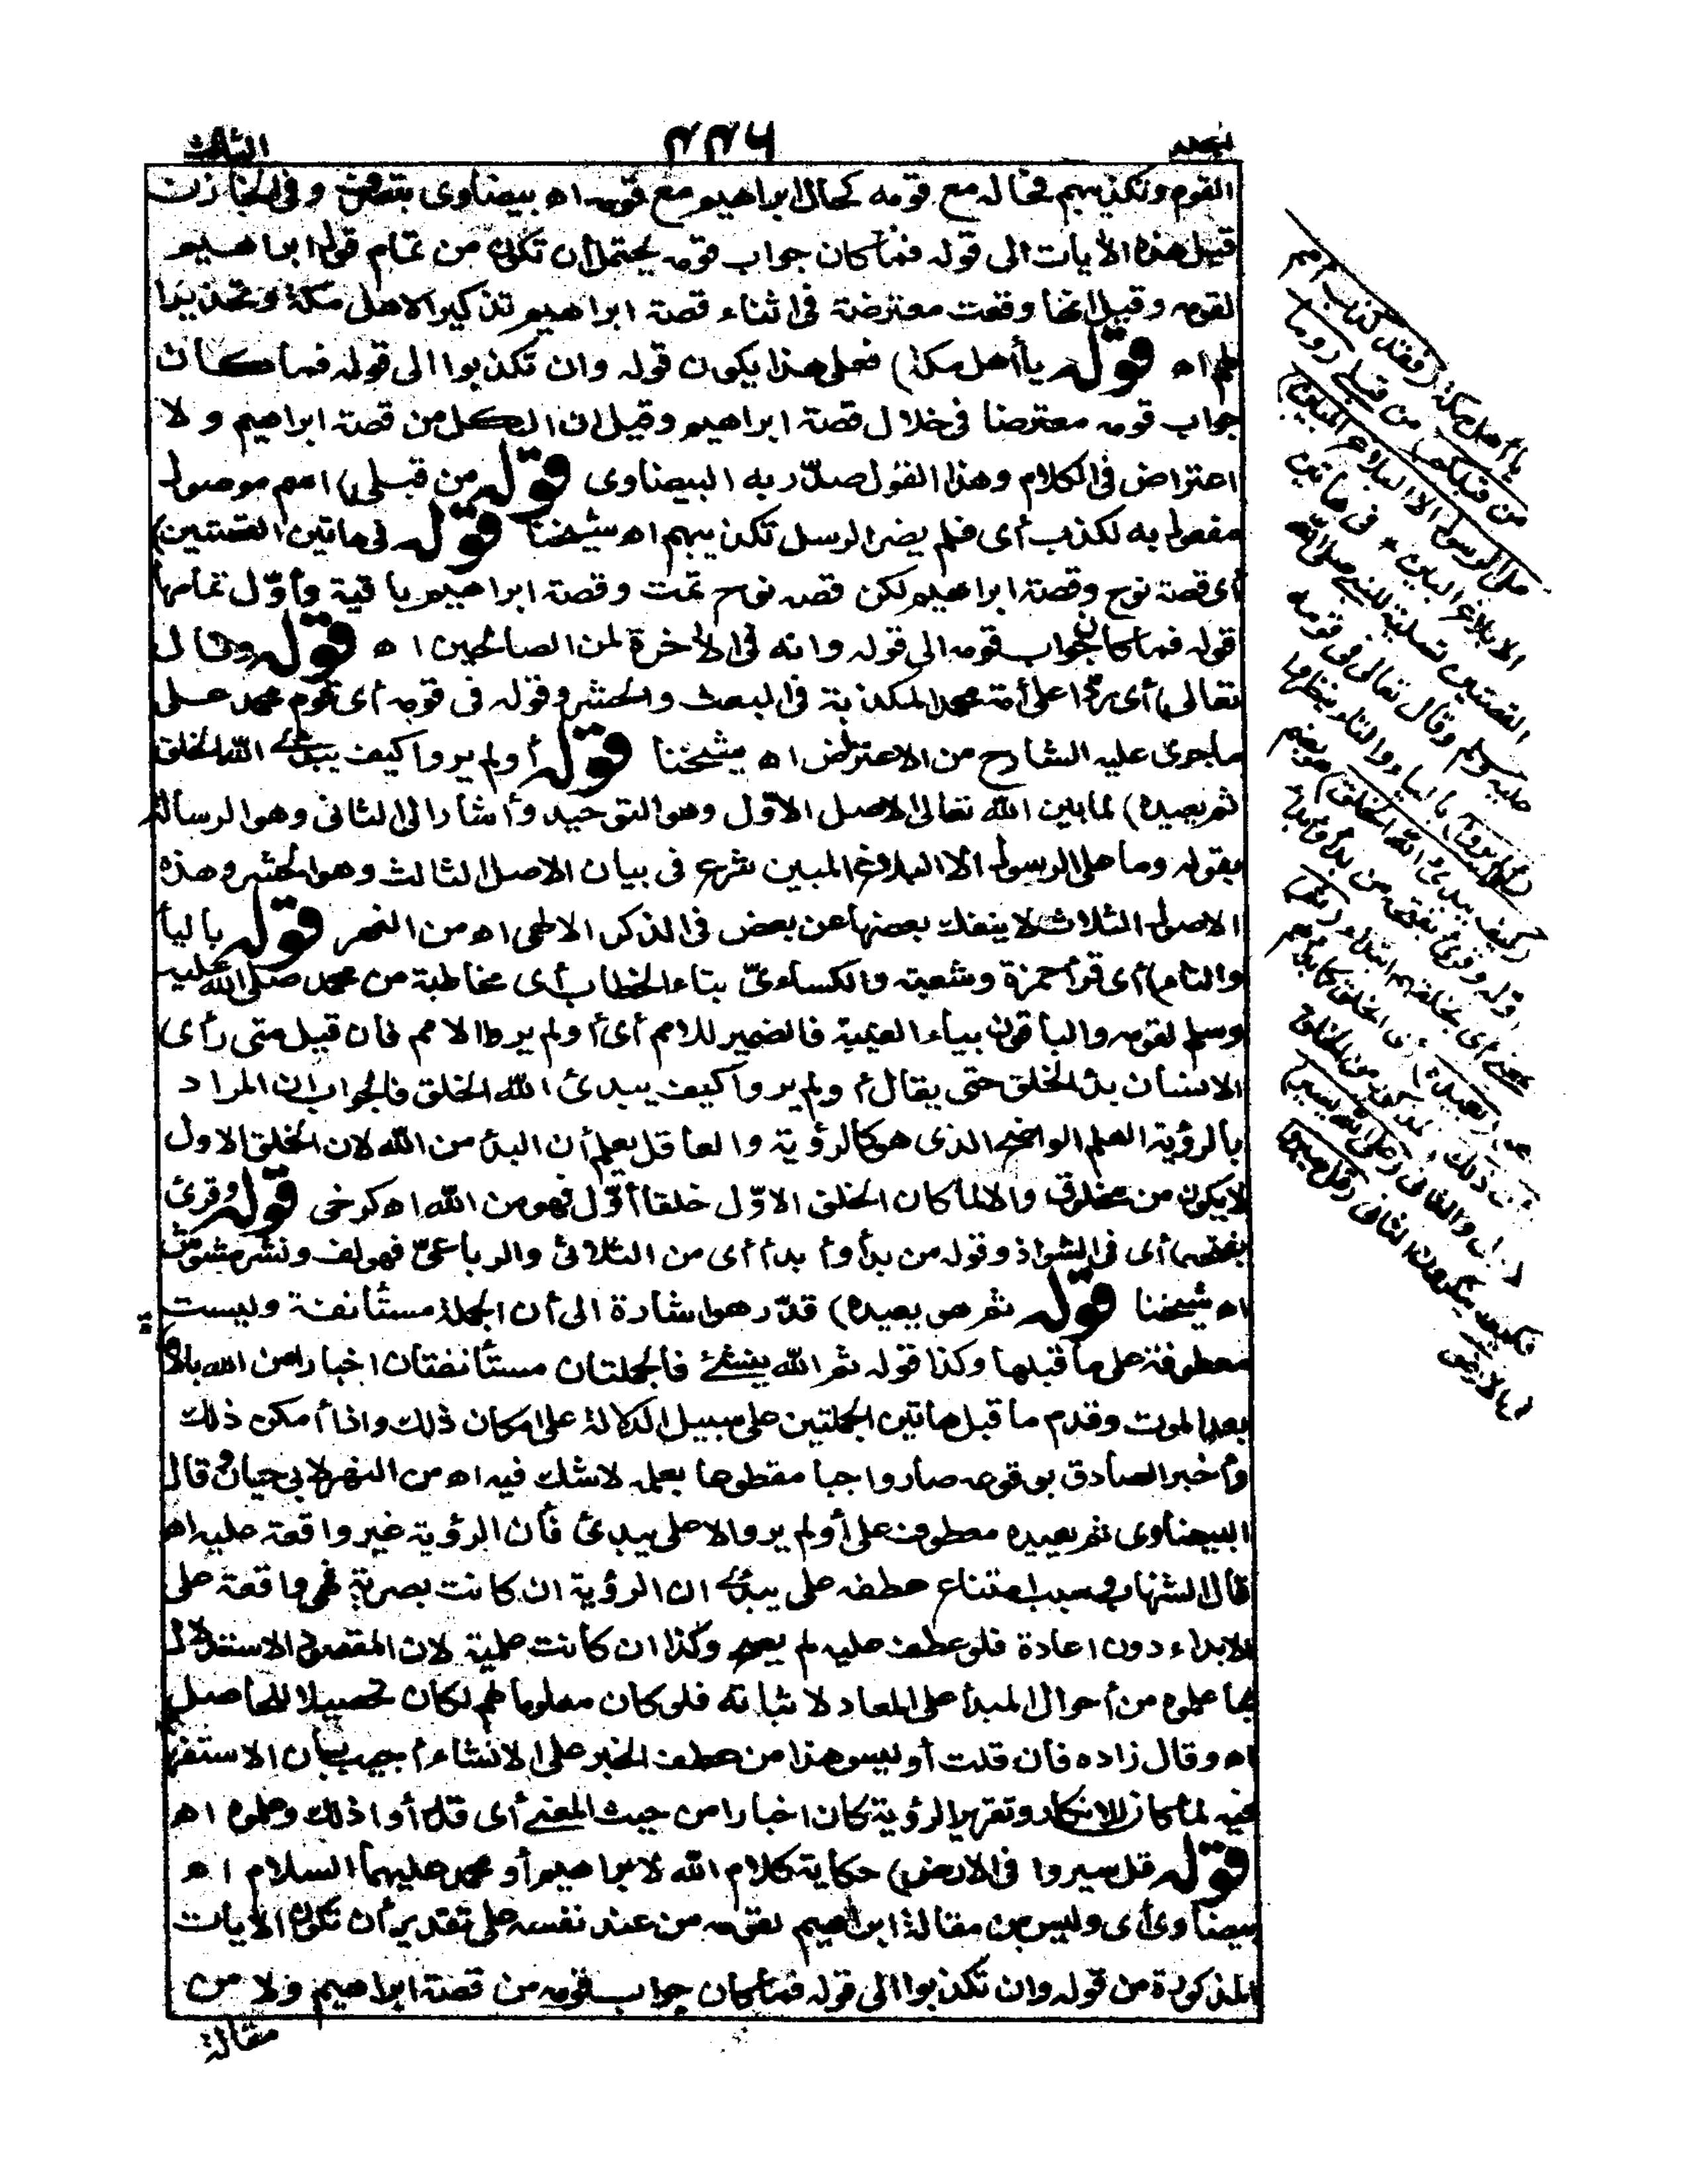 الثالث ٤٤٦ المجلد
القوم وتكذيبهم فحاله مع قومه كحال ابراهيم مع قومه اه بيضاوى بتصرف وفى الخازن
قيل هذه الآيات الى قوله فما كان جواب قومه يحتمل أن تكون من تمام قول ابراهيم
لقومه وقيل انها وقعت معترضة فى اثناء قصة ابراهيم تذكيرا لاهل مكة وتحذيرا
لهم اه قوله ياأهل مكة) فعلى هذا يكون قوله وان تكذبوا الى قوله فما كان
جواب قومه معترضا فى خلال قصة ابراهيم وقيل ان الكل من قصة ابراهيم ولا
اعتراض فى الكلام وهذا القول صدّر به البيضاوى قوله من قبلى) اسم موصول
مفعول به لكذب أى فلم يضر الرسل تكذيبهم اه شيخنا قوله فى هاتين القصتين)
أى قصة نوح وقصة ابراهيم لكن قصه نوح تمت وقصة ابراهيم باقية وأوّل تمامها
قوله فما كان جواب قومه الى قوله وانه فى الآخرة لمن الصالحين اه قوله وقال
تعالى) أى ردّا على أمة محمد المكذبة فى البعث والحشر وقوله فى قومه أى قوم محمد على
ماجرى عليه الشارح من الاعتراض اه شيخنا قوله أولم يروا كيف يبدئ الله الخلق
ثم يعيده) لما بين الله تعالى الاصل الاوّل وهو التوحيد وأشار الى الثانى وهو الرسالة
بقوله وما على الرسول الا البلاغ المبين شرع فى بيان الاصل الثالث وهو الحشر وهذه
الاصول الثلاثة لا ينفك بعضها عن بعض فى الذكر الالهى اه من النهر قوله باليأ
والتاء) أى قرأ حمزة وشعبة والكساءىّ بتاء الخطاب أى مخاطبة من محمد صلى الله عليه
وسلم لقومه والباقون بياء الغيبة فالضمير للامم أى أولم يرو الامم فان قيل متى رأى
الانسان بدء الخلق حتى يقال أولم يروا كيف يبدئ الله الخلق فالجواب ان المراد
بالرؤية العلم الواضح الذى هو كالرؤية والعاقل يعلم أن البدء من الله لان الخلق الاول
لايكون من مخلوق والا لما كان الخلق الاوّل خلقا أوّل فهو من الله اه كرخى قوله وقرئ
بفتحه) أى فى الشواذ وقوله من بدأ وأبدأ أى من الثلاثى والرباعىّ فهو لف ونشر مشوّش
اه شيخنا قوله ثم هو يعيده) قدّر هو اشارة الى أن الجملة مستأنفة وليست
معطوفة على ما قبلها وكذا قوله ثم الله ينشئ فالجملتان مستأنفتان اخبارا من الله بالا
بعد الموت وقدم ما قبل هاتين الجملتين على سبيل الدلالة على امكان ذلك واذا أمكن ذلك
وأخبر الصادق بوقوعه صار واجبا مقطوعا بعلمه لاشك فيه اه من النهر لابى حيان وقال
البيضاوى ثم يعيده معطوف على أولم يروا لا على يبدئ فأن الرؤية غير واقعة عليه اه
قال الشهاب وسبب امتناع عطفه على يبدئ ان الرؤية ان كانت بصرية فهى واقعة على
الابداء دون اعادة فلو عطف عليه لم يصح وكذا ان كانت علمية لان المقصود الاستدلال
بما علموه من أحوال المبدأ على المعاد لاثباته فلو كان معلوما لهم لكان تحصيلا للحاصل
اه وقال زاده فان قلت أوليس هذا من عطف الخبر على الانشاء أجيب بأن الاستفها
فيه لما كان للانكار وتقرير الرؤية كان اخبارا من حيث المعنى أى قد رأوا ذلك وعلموه اه
قوله قل سيروا فى الارض) حكاية كلام الله لابراهيم أو محمد عليهما السلام اه
بيضاوى أى وليس من مقالة ابراهيم لقومه من عند نفسه على تقدير أن تكون الآيات
المذكورة من قوله وان تكذبوا الى قوله فما كان جواب قومه من قصة ابراهيم ولا من
مقالة
يا أهل مكة (فقد كذب أمم
من قبلكم) من قبلى (وما
على الرسول الا البلاغ المبين)
الابلاغ البين * فى هاتين
القصتين تسلية للنبى صلى الله
عليه وسلم وقال تعالى فى قومه
(أولم يروا) بالياء والتاء ينظروا
(كيف يبدئ الله الخلق) هو بضم
أوله وقرئ بفتحه من بدأ وأبدأ
بمعنى أى يخلقهم ابتداء (ثم)
هو (يعيده) أى الخلق كما بدأهم
(ان ذلك) المذكور من الخلق
الاول والثانى (على الله يسير)
فكيف ينكرون الثانى (قل سيروا
فى الارض